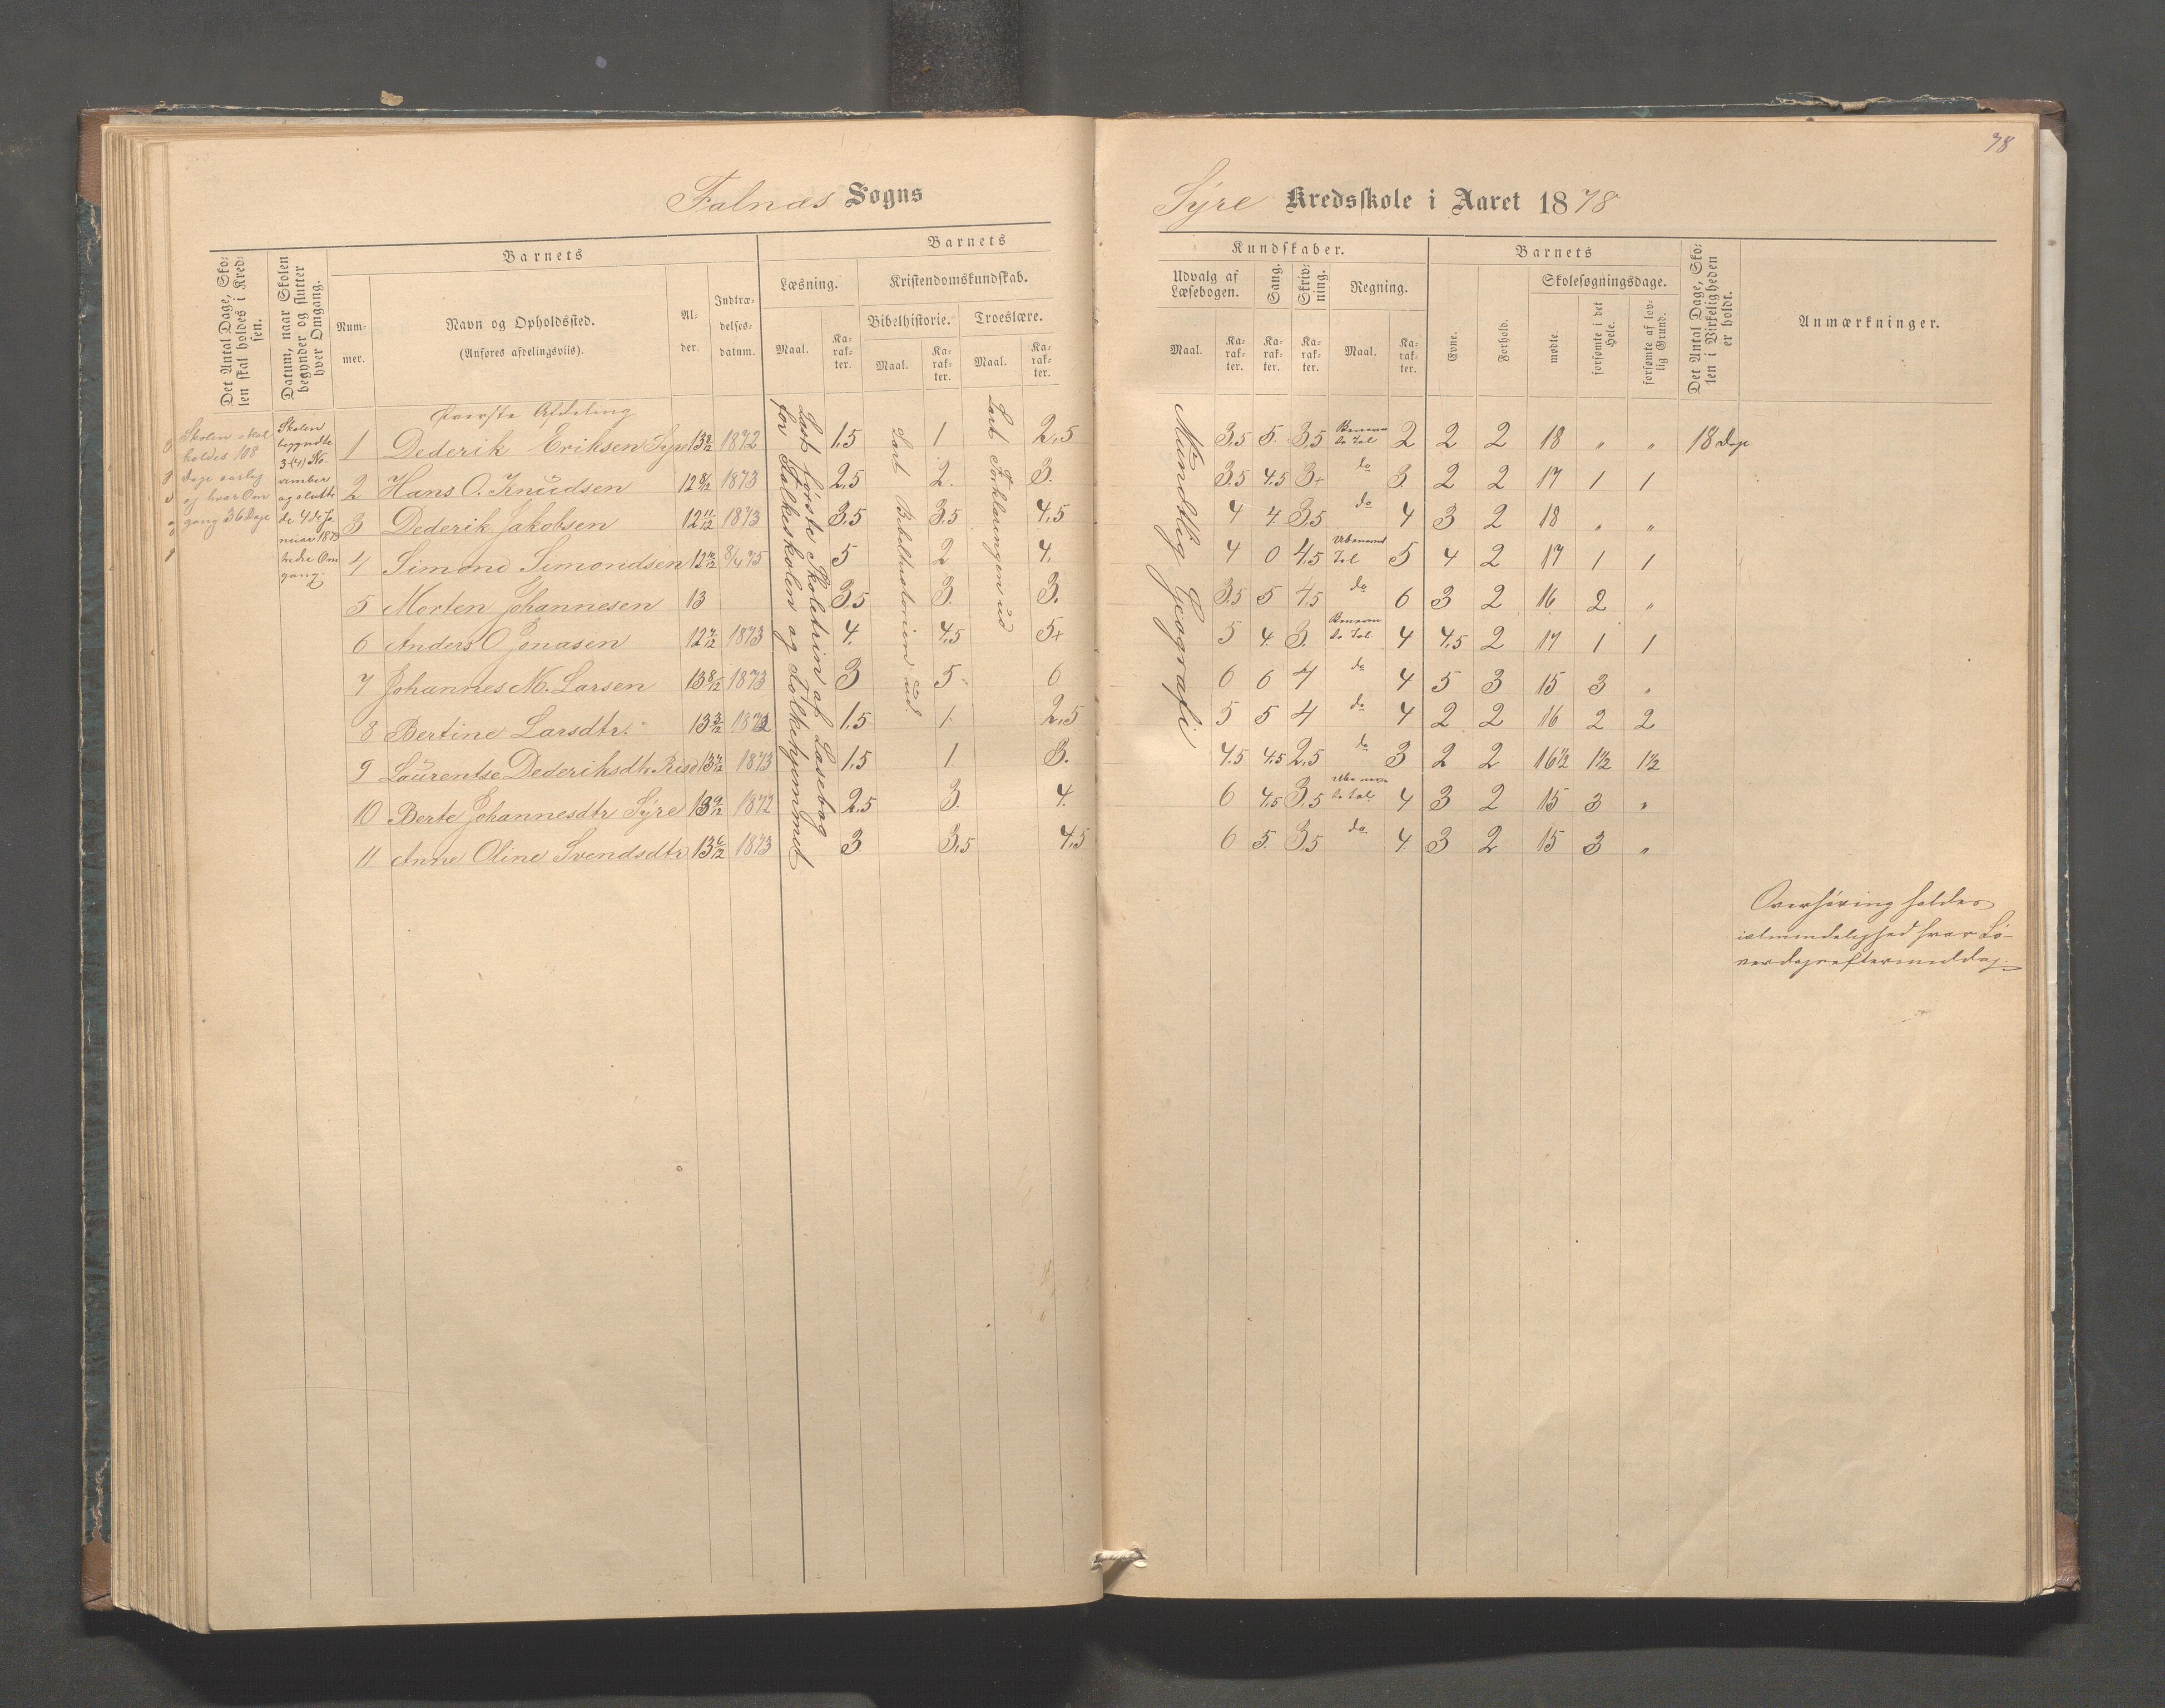 78
Falnæs Sogns
Syre Kredsskole i Aaret 1878
Det Antal Dage, Skolen skal holdes i Kredsen.
Datum, naar Skolen begynder og slutter hver Omgang.
Barnets
Nummer.
Navn og Opholdssted.
(Anføres afdelingsviis).
Alder.
Indtrædelsesdatum.
Barnets
Læsning.
Maal.
Karakter.
Kristendomskundskab.
Bibelhistorie.
Maal.
Karakter.
Troeslære.
Maal.
Karakter.
Kundskaber.
Udvalg af Læsebogen.
Maal.
Karakter.
Sang.
Karakter.
Skrivning.
Karakter.
Regning.
Maal.
Karakter.
Barnets
Evne.
Forhold.
Skolesøgningsdage.
mødte.
forsømte i det Hele.
forsømte af lovlig Grund.
Det Antal Dage, Skolen i Virkeligheden er holdt.
Anmærkninger.
Skolen skal
holdes 108
Dage aarlig
og hver Om
gang 36 Dage
Skolen
begyndte
3-(4) No-
vember
og slutte
de 4de Ja-
nuar 1879
tredie Om
gang.
øverste Afdeling
Læst første Skoletrin af Læsebog
for Folkeskolen og Folkehjemmet
Lært Bibelhistorien ud.
Lært Forklaringen ud
Mundtlig Geografi
1 Dederik Eriksen Syre 13 8/12 1872 1,5 1 2,5 3,5 5. 3,5 Benævn
te Tal 2 2 2 18 " " 18 Dage
2 Hans O. Knudsen 12 8/12 1873 2,5 2. 3. 3,5 4,5 3+ do 3. 2 2 17 1 1
3 Dederik Jakobsen 12 11/12 1873 3,5 3,5 4,5 4 4. 3,5 do 4 3 2 18 " "
4 Simond Simondsen 8/4 75 5 2 4. 4 0 4,5 Ubenævnt
Tal 5 4 2 17 1 1
5 Morten Johannesen 13 3,5 3. 3. 3,5 5 4,5 do 6 3 2 16 2 "
6 Anders O Jonasen 12 7/12 1873 4. 4,5 5+ 5 4. 3. Benævn
te Tal 4 4,5 2 17 1 1
7 Johannes M. Larsen 13 8/12 1873 3 5 6 6 6 4 do 4 5 3 15 3 "
8 Bertine Larsdtr. 13 3/12 1872 1,5 1. 2,5 5 5 4 do 4 2 2 16 2 2
9 Laurentse Dederiksdtr Risd 13 7/12 1873 1,5 1. 3. 4,5 4,5 2,5 do 3 2 2 16½ 1½ 1½
10 Berte Johannesdtr Syre 13 9/12 1872 2,5 3. 4. 6 4,5 3,5 Ubenævn
te Tal 4 3 2 15 3 "
11 Anne Oline Svendsdtr 13 6/12 1873 3 3,5 4,5 6 5. 3,5 do 4 3 2 15 3 "
Overhøring holdes
ialmindelighed hver Lø-
verdagseftermiddag.